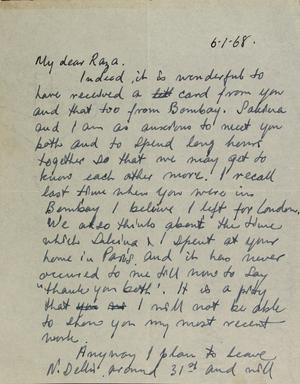 6-1-68.
My dear Raza.
Indeed, it is wonderful to
have received a card from you
and that too from Bombay. Sakina
and I am as anxious to meet you
both and to spend long hours
together so that we may get to
know each other more. I recall
last time when you were in
Bombay I believe I left for London.
We also think about the time
which Sakina & I spent at your
home in Paris. And it has never
occured to me till now to say
"thank you both". It is a pity
that I will not be able
to show you my most recent
work.
Anyway I plan to leave
N. Delhi around 31st and will